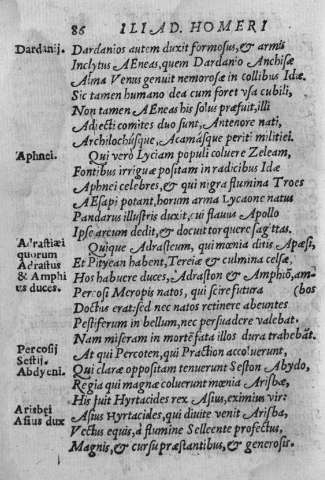 86 ILIAD. HOMERI
Dardanij. Dardanios autem duxit formosus, & armis
Inclytus AEneas, quem Dardanio Anchisæ
Alma Venus genuit nemorosæ in collibus Idæ.
Sic tamen humano dea cum foret vsa cubili,
Non tamen AEneas his solus præfuit, illi
Adiecti comites duo sunt, Antenore nati,
Archilochúsque, Acamásque periti militiei.
Aphnei. Qui verò Lyciam populi coluere Zeleam,
Fontibus irriguæ positam in radicibus Idæ
Aphnei celebres, & qui nigra flumina Troes
AEsapi potant, horum arma Lycaone natus
Pandarus illustris duxit, cui flauus Apollo
Ipse arcum dedit, & docuit torquere sagittas.
Adrastiæi Quique Adrasteum, qui mœnia ditis Apæsi,
quorum Et Pityean habent, Tereiæ & culmina celsæ,
Adrastus & Amphius duces. Hos habuere duces, Adraston & Amphiõ, am-
Percosi Meropis natos, qui scire futura (bos
Doctus erat: sed nec natos retinere abeuntes
Pestiferum in bellum, nec persuadere valebat.
Nam miseram in mortẽ fata illos dura trahebãt.
Percosij At qui Percoten, qui Praction accoluerunt,
Sestij. Abdyeni. Qui claræ oppositam tenuerunt Seston Abydo,
Regia qui magnæ coluerunt mœnia Arisbæ,
His fuit Hyrtacides rex Asius, eximius vir:
Arisbei Asius dux Asius Hyrtacides, qui diuite venit Arisba,
Vectus equis, à flumine Selleente profectus,
Magnis, & cursu præstantibus, & generosis.